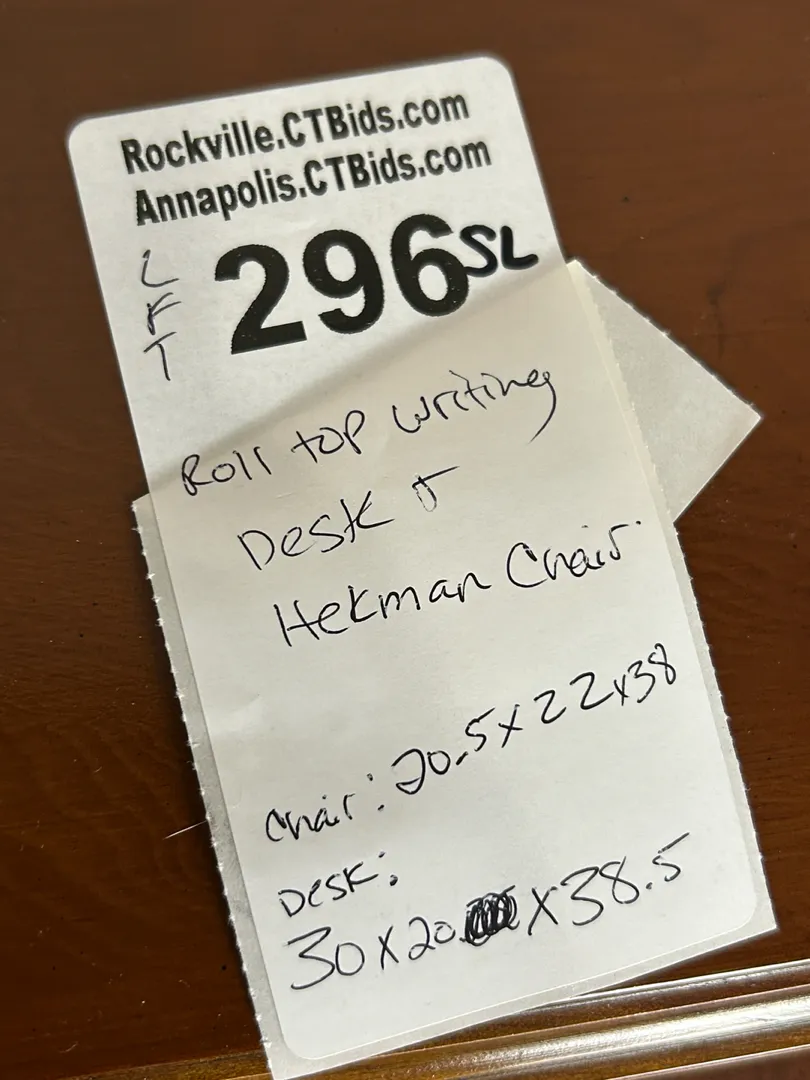 Rockville.CTBids.com
Annapolis.CTBids.com
LFT
296 SL
Roll top writing
Desk &
Hekman Chair.
Chair: 20.5 x 22 x 38
Desk:
30 x 20. x 38.5